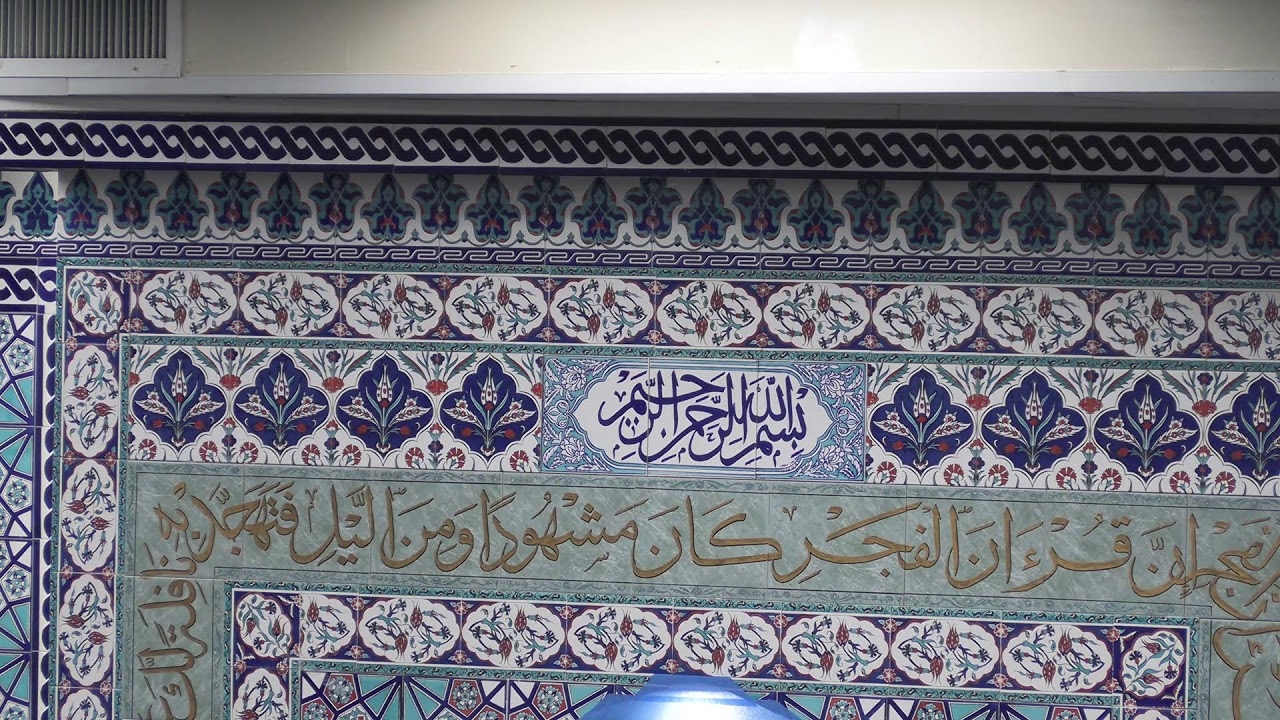 بسم الله الرحمن الرحيم
إن قرءان الفجر كان مشهودا ومن الليل فتهجد به
نافلة لك